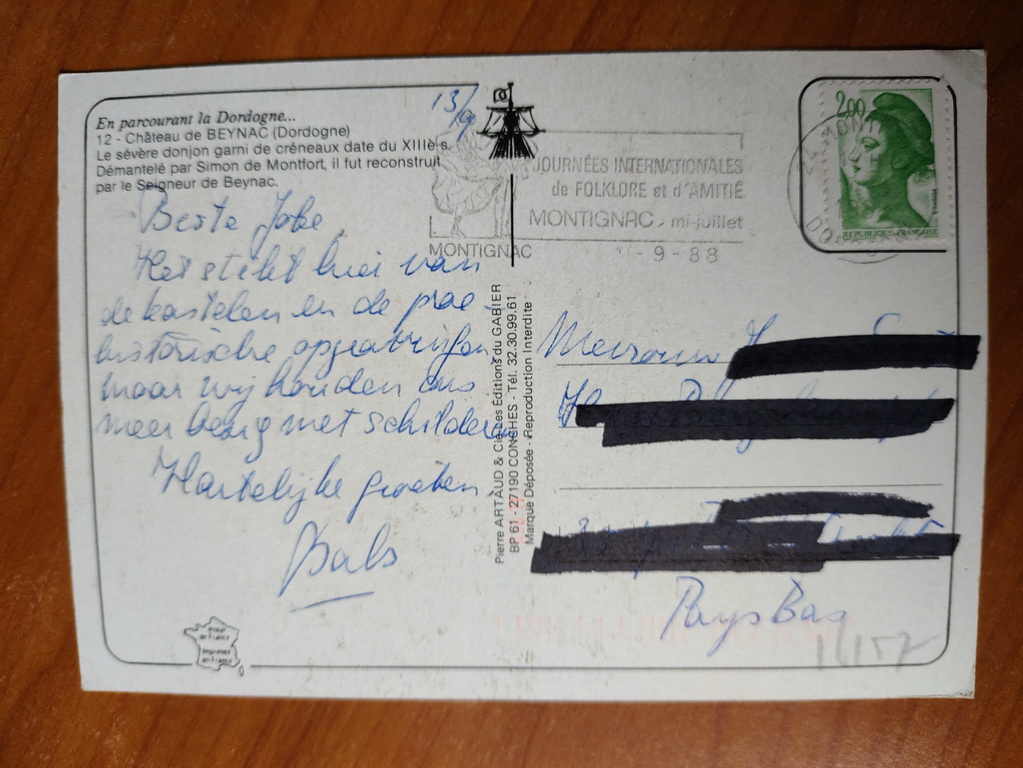 En parcourant la Dordogne...
12 - Château de BEYNAC (Dordogne)
Le sévère donjon garni de créneaux date du XIIIè s.
Démantelé par Simon de Montfort, il fut reconstruit
par le Seigneur de Beynac.
13/9
Beste Jobe,
Het stikt hier van
de kastelen en de prae
historische opgravingen
maar wij houden ons
meer bezig met schilderen
Hartelijke groeten
Bals
MONTIGNAC
JOURNÉES INTERNATIONALES
de FOLKLORE et d'AMITIÉ
MONTIGNAC - mi-juillet
-9-88
2,00
REPUBLIQUE FRANÇAISE
24 MONTI
DO
Pierre ARTAUD & Cie Les Éditions du GABIER
BP 61 - 27190 CONCHES - Tél. 32.30.99.61
Marque Déposée - Reproduction Interdite
Mevrouw
Pays Bas
imprimée
en France